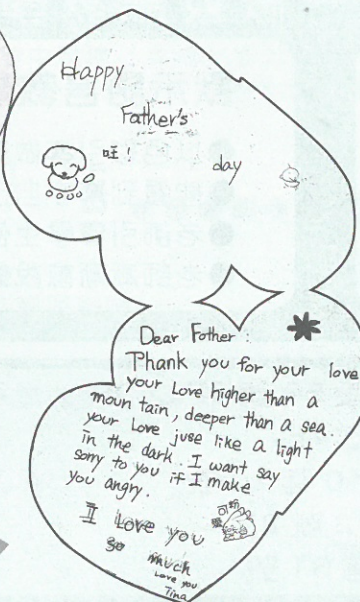 Happy
Father's
旺！
day
Dear Father :
Thank you for your love
your Love higher than a
moun tain, deeper than a sea.
your Love juse like a light
in the dark. I want say
sorry to you if I make
you angry.
I Love you
so
much
Love you
Tina